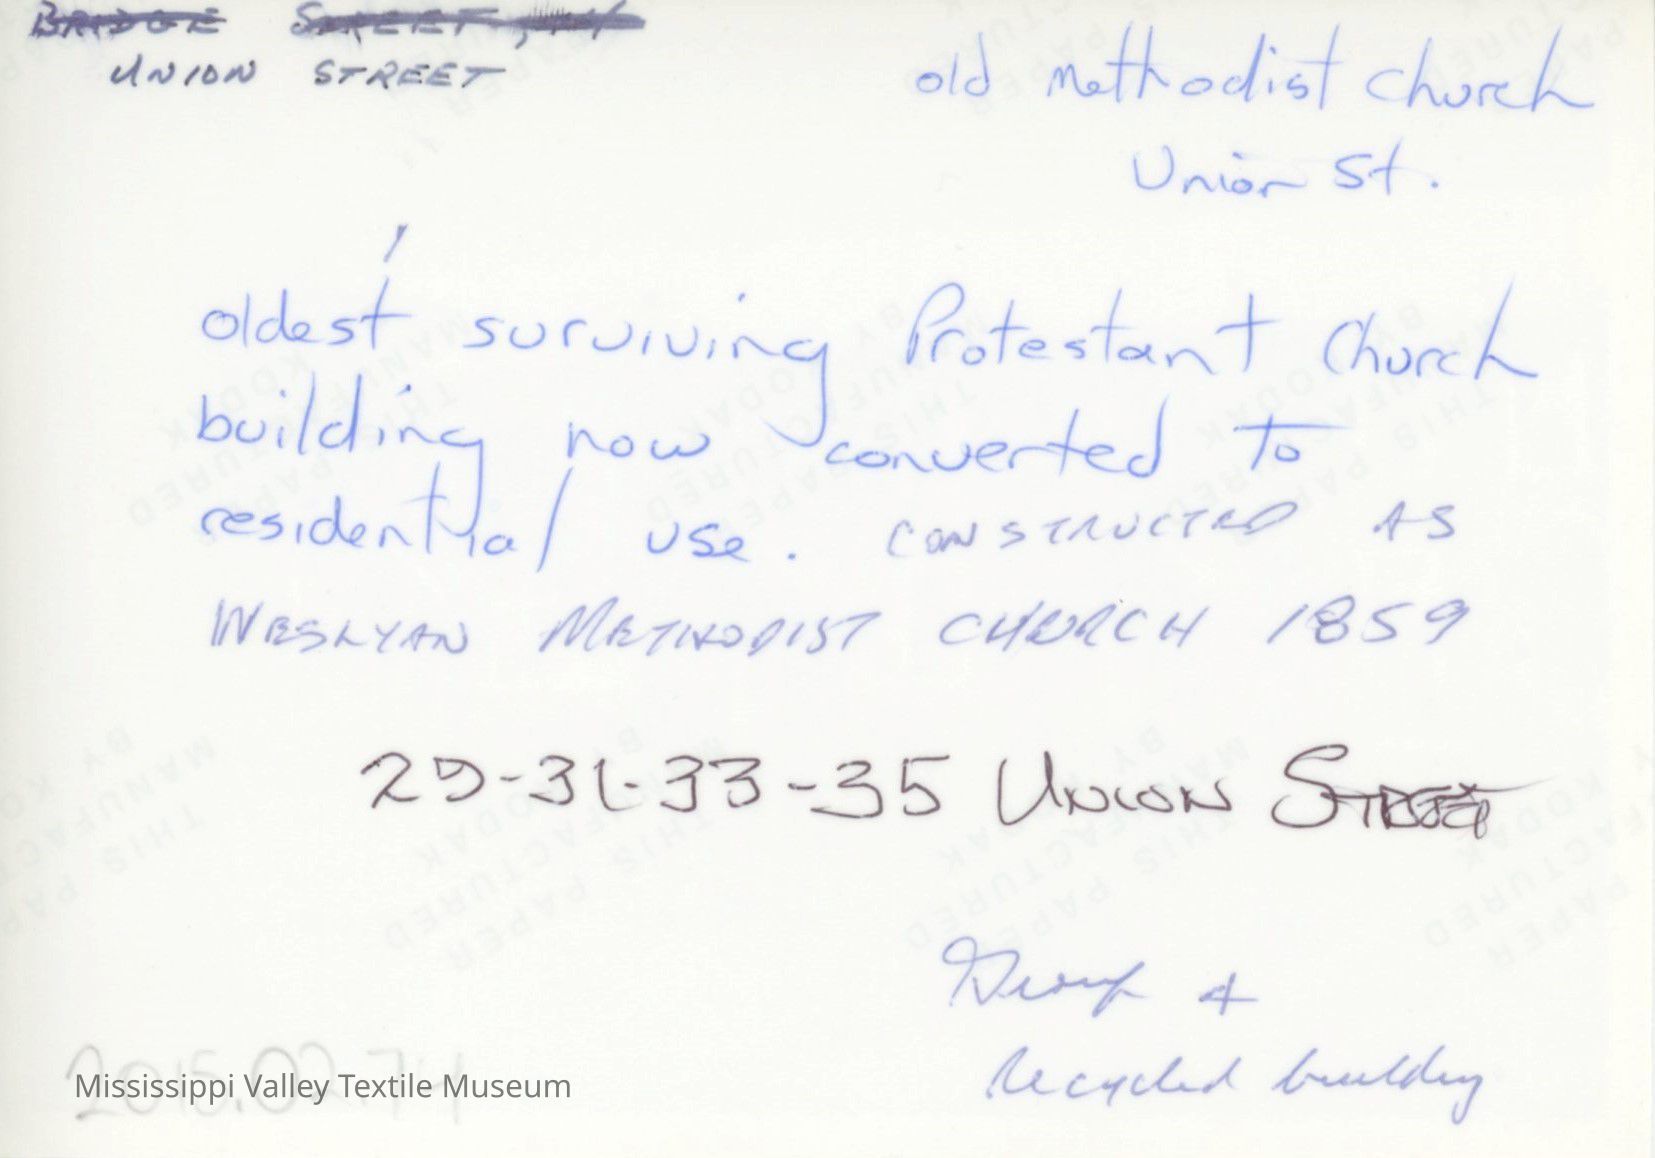 BRIDGE STREET,
UNION STREET
old methodist church
Union St.
oldest surviving Protestant Church
building now converted to
residential use. CONSTRUCTED AS
WESLYAN METHODIST CHURCH 1859
29-31-33-35 UNION STREET
Group 4
Recycled building
Mississippi Valley Textile Museum
THIS PAPER
MANUFACTURED
BY KODAK